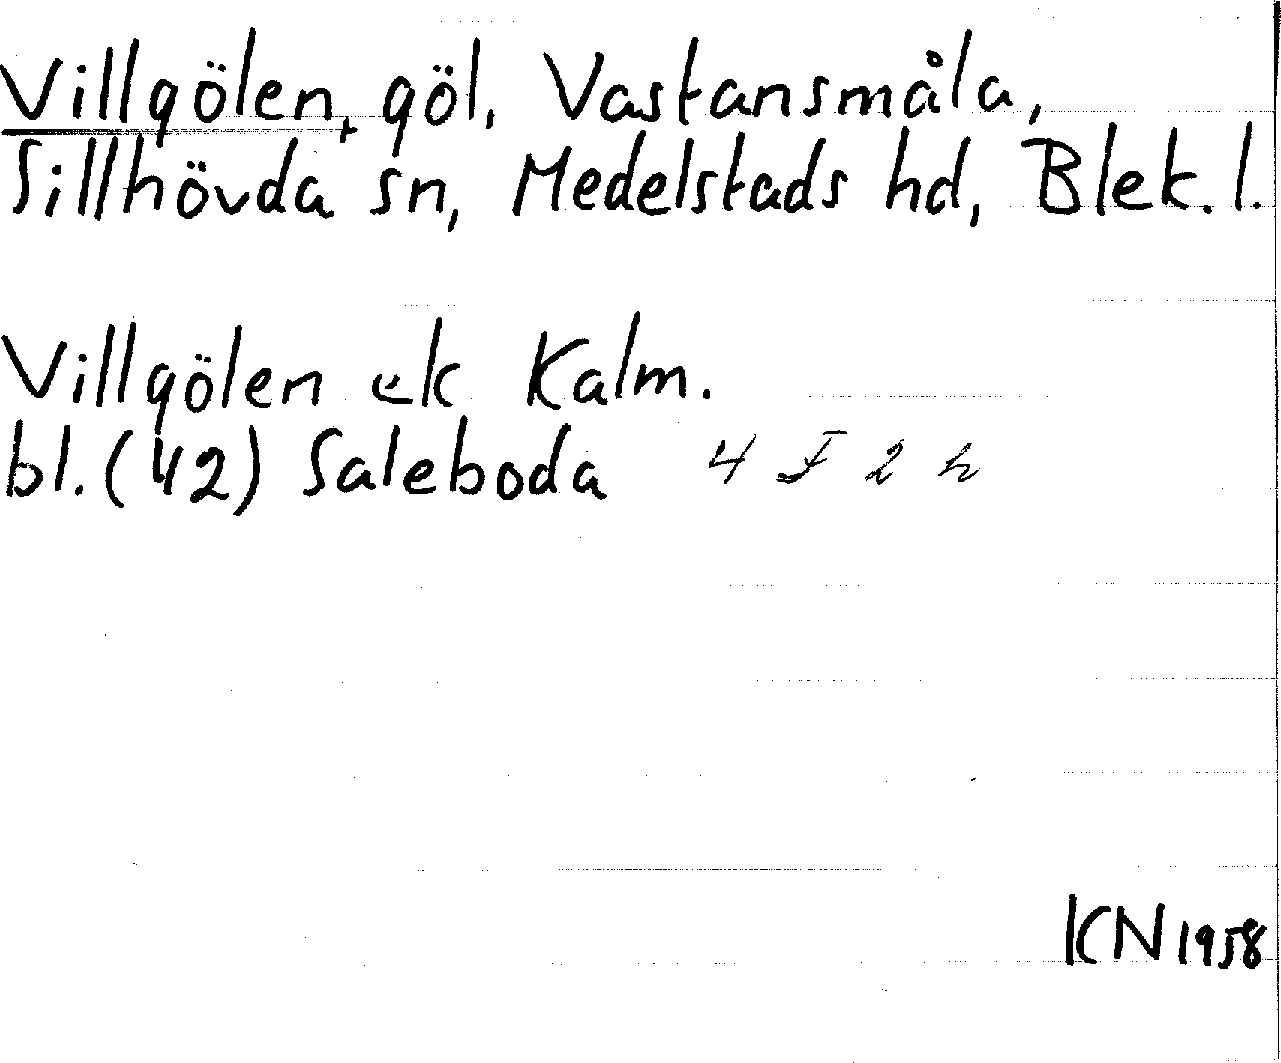 Villgölen, göl, Vastansmåla,
Sillhövda sn, Medelstads hd, Blek. l.
Villgölen ek Kalm.
bl. (42) Saleboda 4 F 2 h
KN 1958